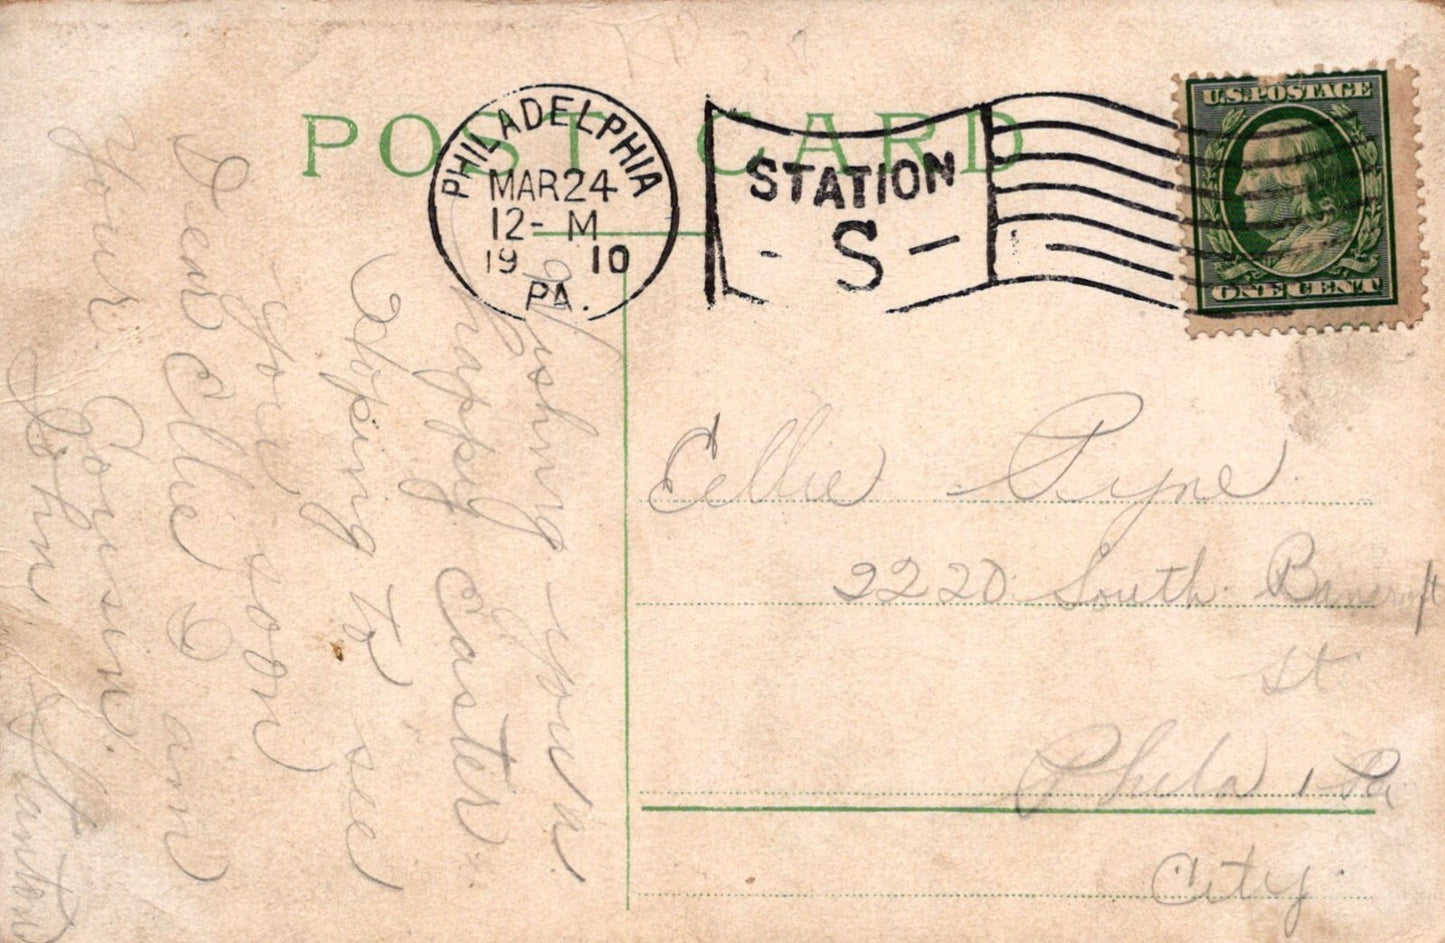 POST CARD
PHILADELPHIA
MAR 24
12- M
19 10
PA.
STATION
- S -
U.S. POSTAGE
ONE CENT
Wishing you a
happy easter
Hoping to see
you soon
Dear Ellie I am
your Cousin.
John Stanton
Ellie Pyne
2220 South Bancroft
st
Phila, Pa
City